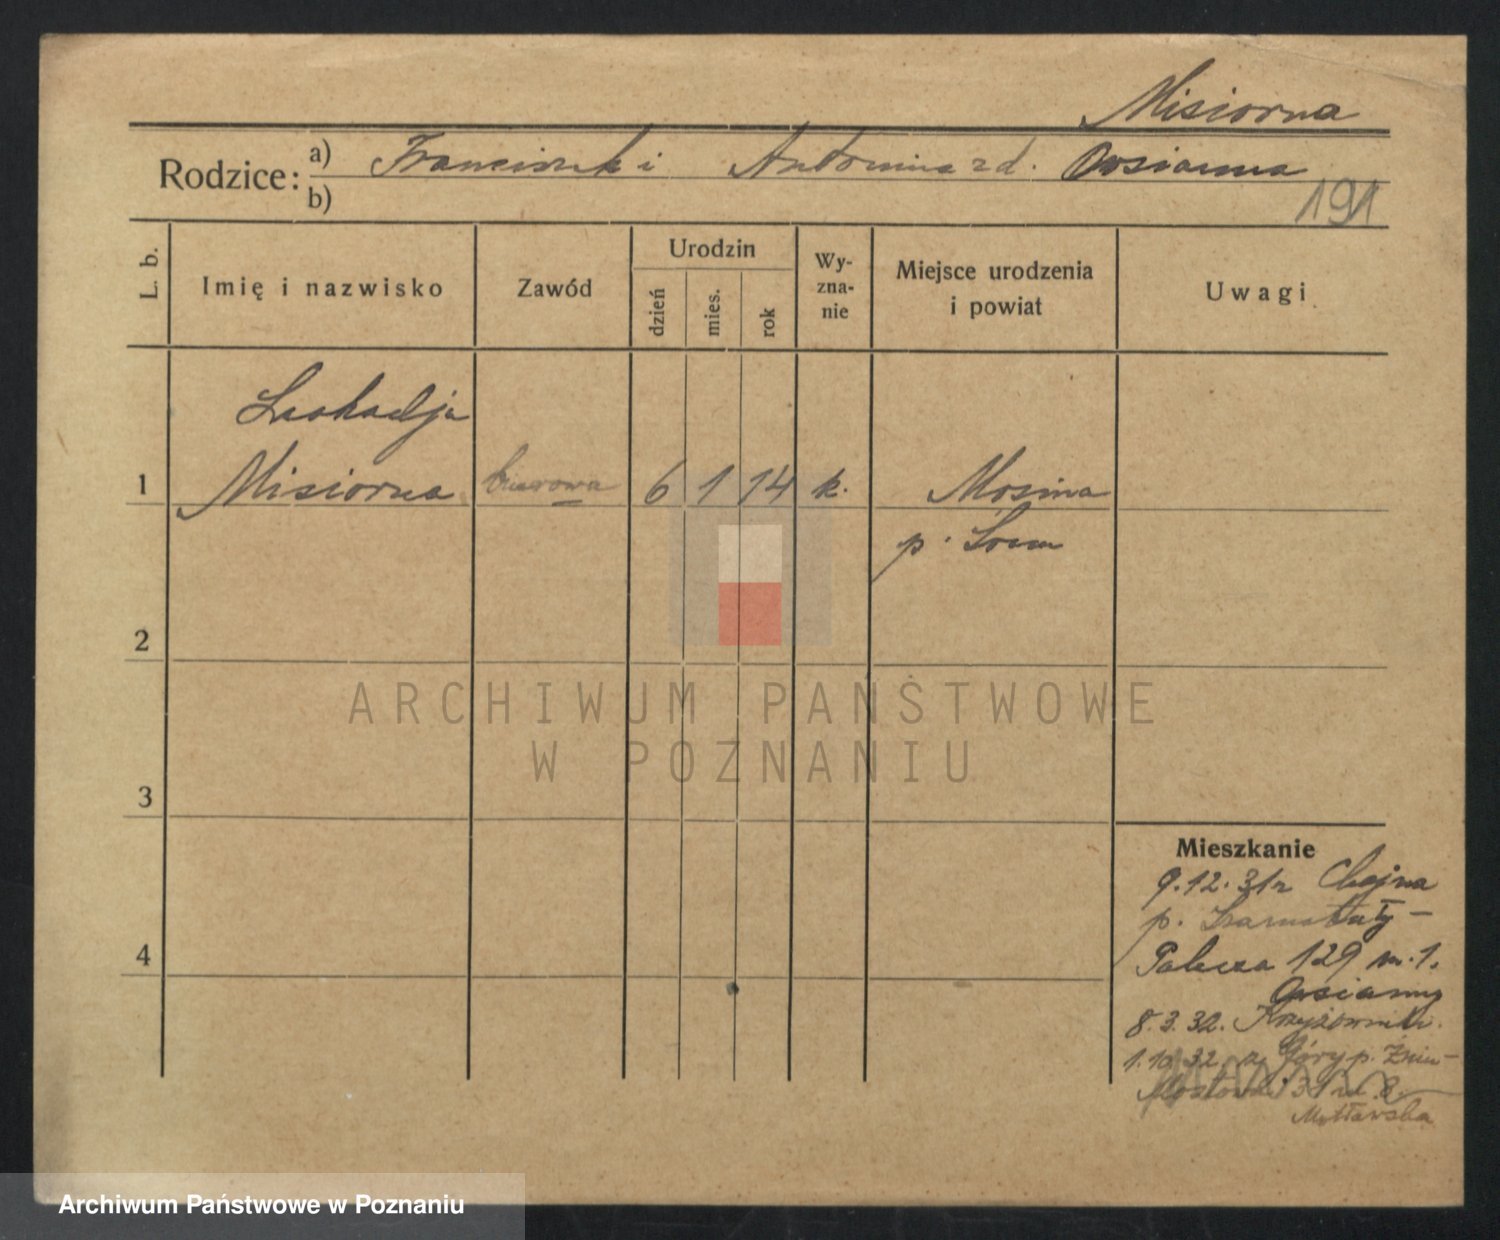 Misiorna
Rodzice: a) Franciszek i Antonina zd. Owsianna
b)
191
L. b.
Imię i nazwisko
Zawód
Urodzin
dzień
mies.
rok
Wy-
zna-
nie
Miejsce urodzenia
i powiat
Uwagi
Leokadja
1 Misiorna biurowa 6 1 14 k. Mosina
p. Śrem
2
ARCHIWUM PAŃSTWOWE
W POZNANIU
3
Mieszkanie
9.12.31r Chojna
p. Szamotuły –
4
129 m. 1.
8.3.32.
1.10.32 z Góry p. Żnin –
Archiwum Państwowe w Poznaniu